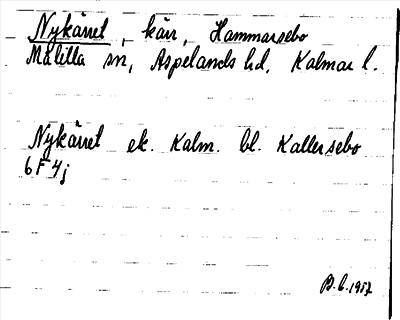 Nykärret, kärr, Hammarsebo
Målilla sn, Aspelands hd, Kalmar l.
Nykärret ek. Kalm. bl. Kallersebo
6 F 4j
B.L. 1957